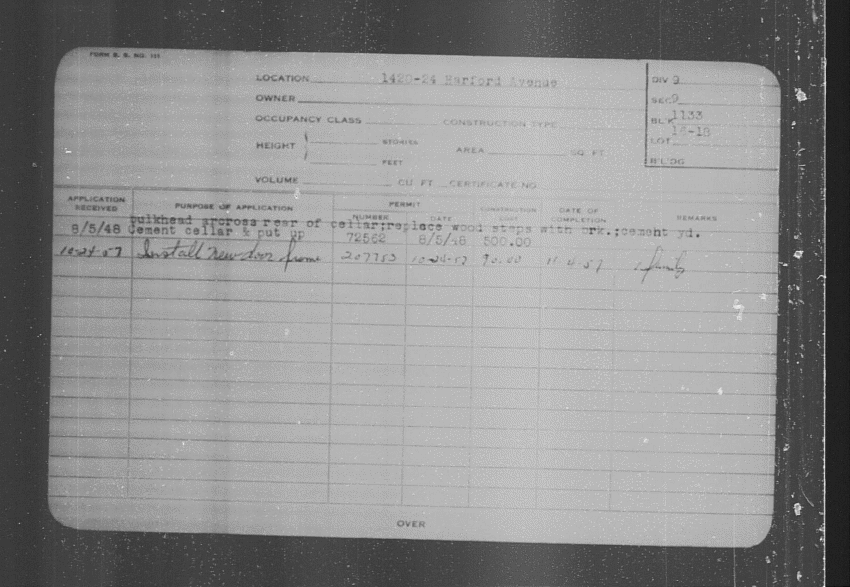 FORM B. B. NO. 123
LOCATION 1420-24 Harford Avenue
DIV 9
OWNER
SEC 9
OCCUPANCY CLASS CONSTRUCTION TYPE
BL'K 1133
HEIGHT STORIES
LOT 14-18
FEET
AREA SQ. FT.
B'L'DG
VOLUME CU. FT. CERTIFICATE NO.
APPLICATION RECEIVED PURPOSE OF APPLICATION PERMIT NUMBER DATE CONSTRUCTION COST DATE OF COMPLETION REMARKS
bulkhead arcross rear of cellar;replace wood steps with brk.;cement yd.
8/5/48 Cement cellar & put up 72562 8/5/48 500.00
10-24-57 Install new door frame 207753 10-24-57 90.00 11-4-57 1 family
OVER